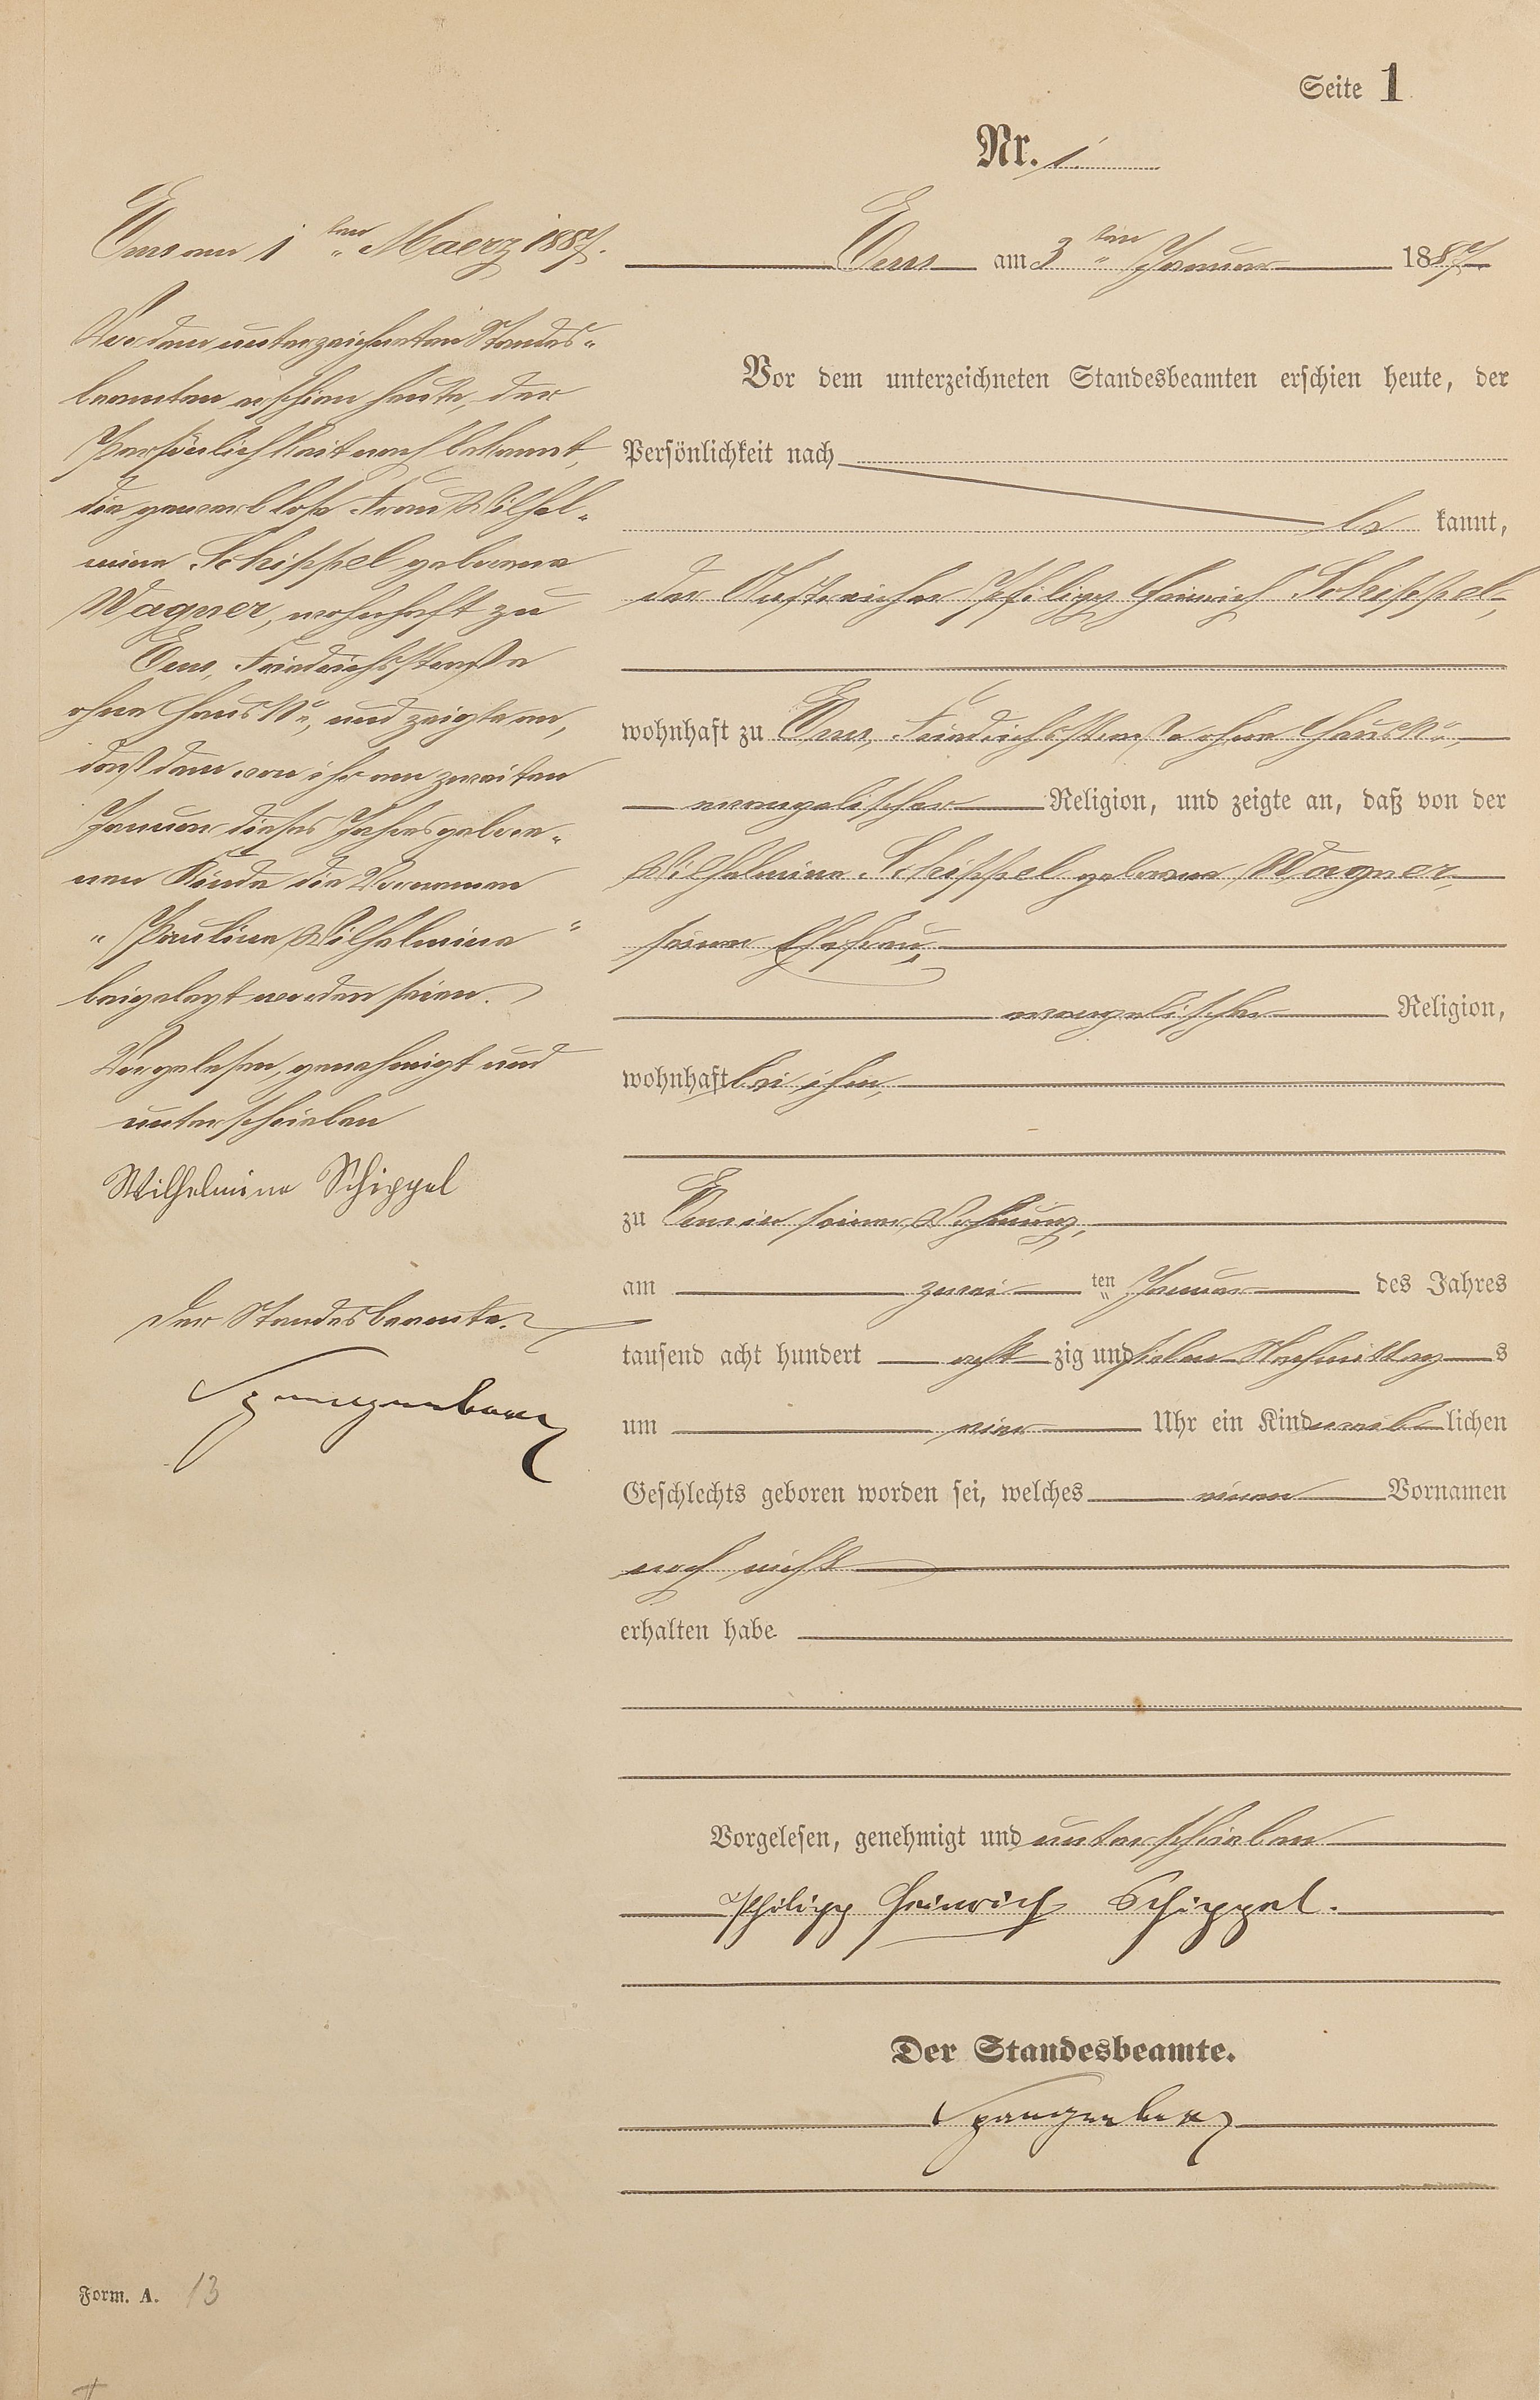 Seite 1
Nr. 1
Ems am 1ten Maerz 1887.
Vor dem unterzeichneten Standes-
beamten erschien heute, der
Persönlichkeit nach bekannt,
die gewerblose Frau Wilhel-
mine Schippel geborene
Wagner, wohnhaft zu
Ems, Friedrichsstraße
ohne Haus No, und zeigte an,
daß dem von ihr am zweiten
Januar dieses Jahres gebore-
nen Kinde die Vornamen
"Pauline Wilhelmine"
beigelegt worden seien.
Vorgelesen, genehmigt und
unterschrieben
Wilhelmine Schippel
Der Standesbeamte.
Spangenberg
Ems am 3ten Januar 1887.
Vor dem unterzeichneten Standesbeamten erschien heute, der
Persönlichkeit nach
be kannt,
der Philipp Heinrich Schippel,
wohnhaft zu Ems, Friedrichsstraße ohne Haus No,
evangelischer Religion, und zeigte an, daß von der
Wilhelmine Schippel geborene Wagner,
seiner Ehefrau,
evangelischer Religion,
wohnhaft bei ihm,
zu Ems in seiner Wohnung,
am zwei ten Januar des Jahres
tausend acht hundert acht zig und sieben Nachmittag s
um ein Uhr ein Kind weib lichen
Geschlechts geboren worden sei, welches einen Vornamen
noch nicht
erhalten habe
Vorgelesen, genehmigt und unterschrieben
Philipp Heinrich Schippel.
Der Standesbeamte.
Spangenberg
Form. A. 13